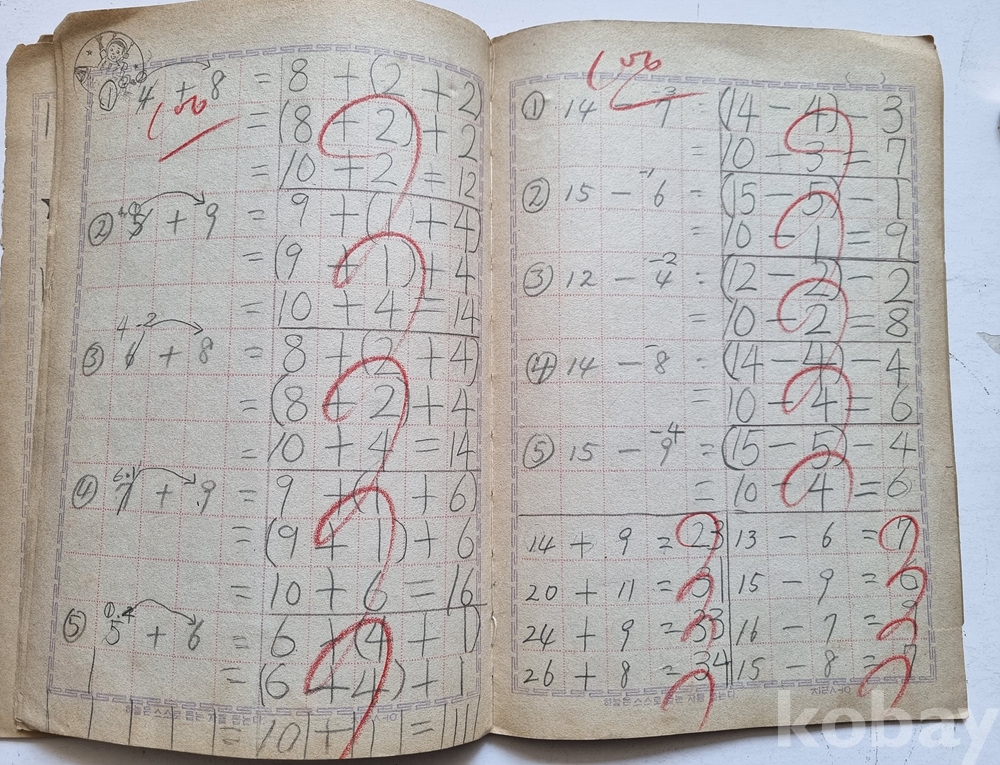 ① 4 + 8 = 8 + (2 + 2)
100
= (8 + 2) + 2
= 10 + 2 = 12
② 5 + 9 = 9 + (1 + 4)
= (9 + 1) + 4
= 10 + 4 = 14
4 2
③ 6 + 8 = 8 + (2 + 4)
= (8 + 2) + 4
= 10 + 4 = 14
6 1
④ 7 + 9 = 9 + (1 + 6)
= (9 + 1) + 6
= 10 + 6 = 16
① 4
⑤ 5 + 6 = 6 + (4 + 1)
= (6 + 4) + 1
= 10 + 1 = 11
100
-3
① 14 - 7 = (14 - 4) - 3
= 10 - 3 = 7
-1
② 15 - 6 = (15 - 5) - 1
= 10 - 1 = 9
-2
③ 12 - 4 = (12 - 2) - 2
= 10 - 2 = 8
④ 14 - 8 = (14 - 4) - 4
= 10 - 4 = 6
-4
⑤ 15 - 9 = (15 - 5) - 4
= 10 - 4 = 6
14 + 9 = 23
20 + 11 = 31
24 + 9 = 33
26 + 8 = 34
13 - 6 = 7
15 - 9 = 6
16 - 7 = 9
15 - 8 = 7
kobay